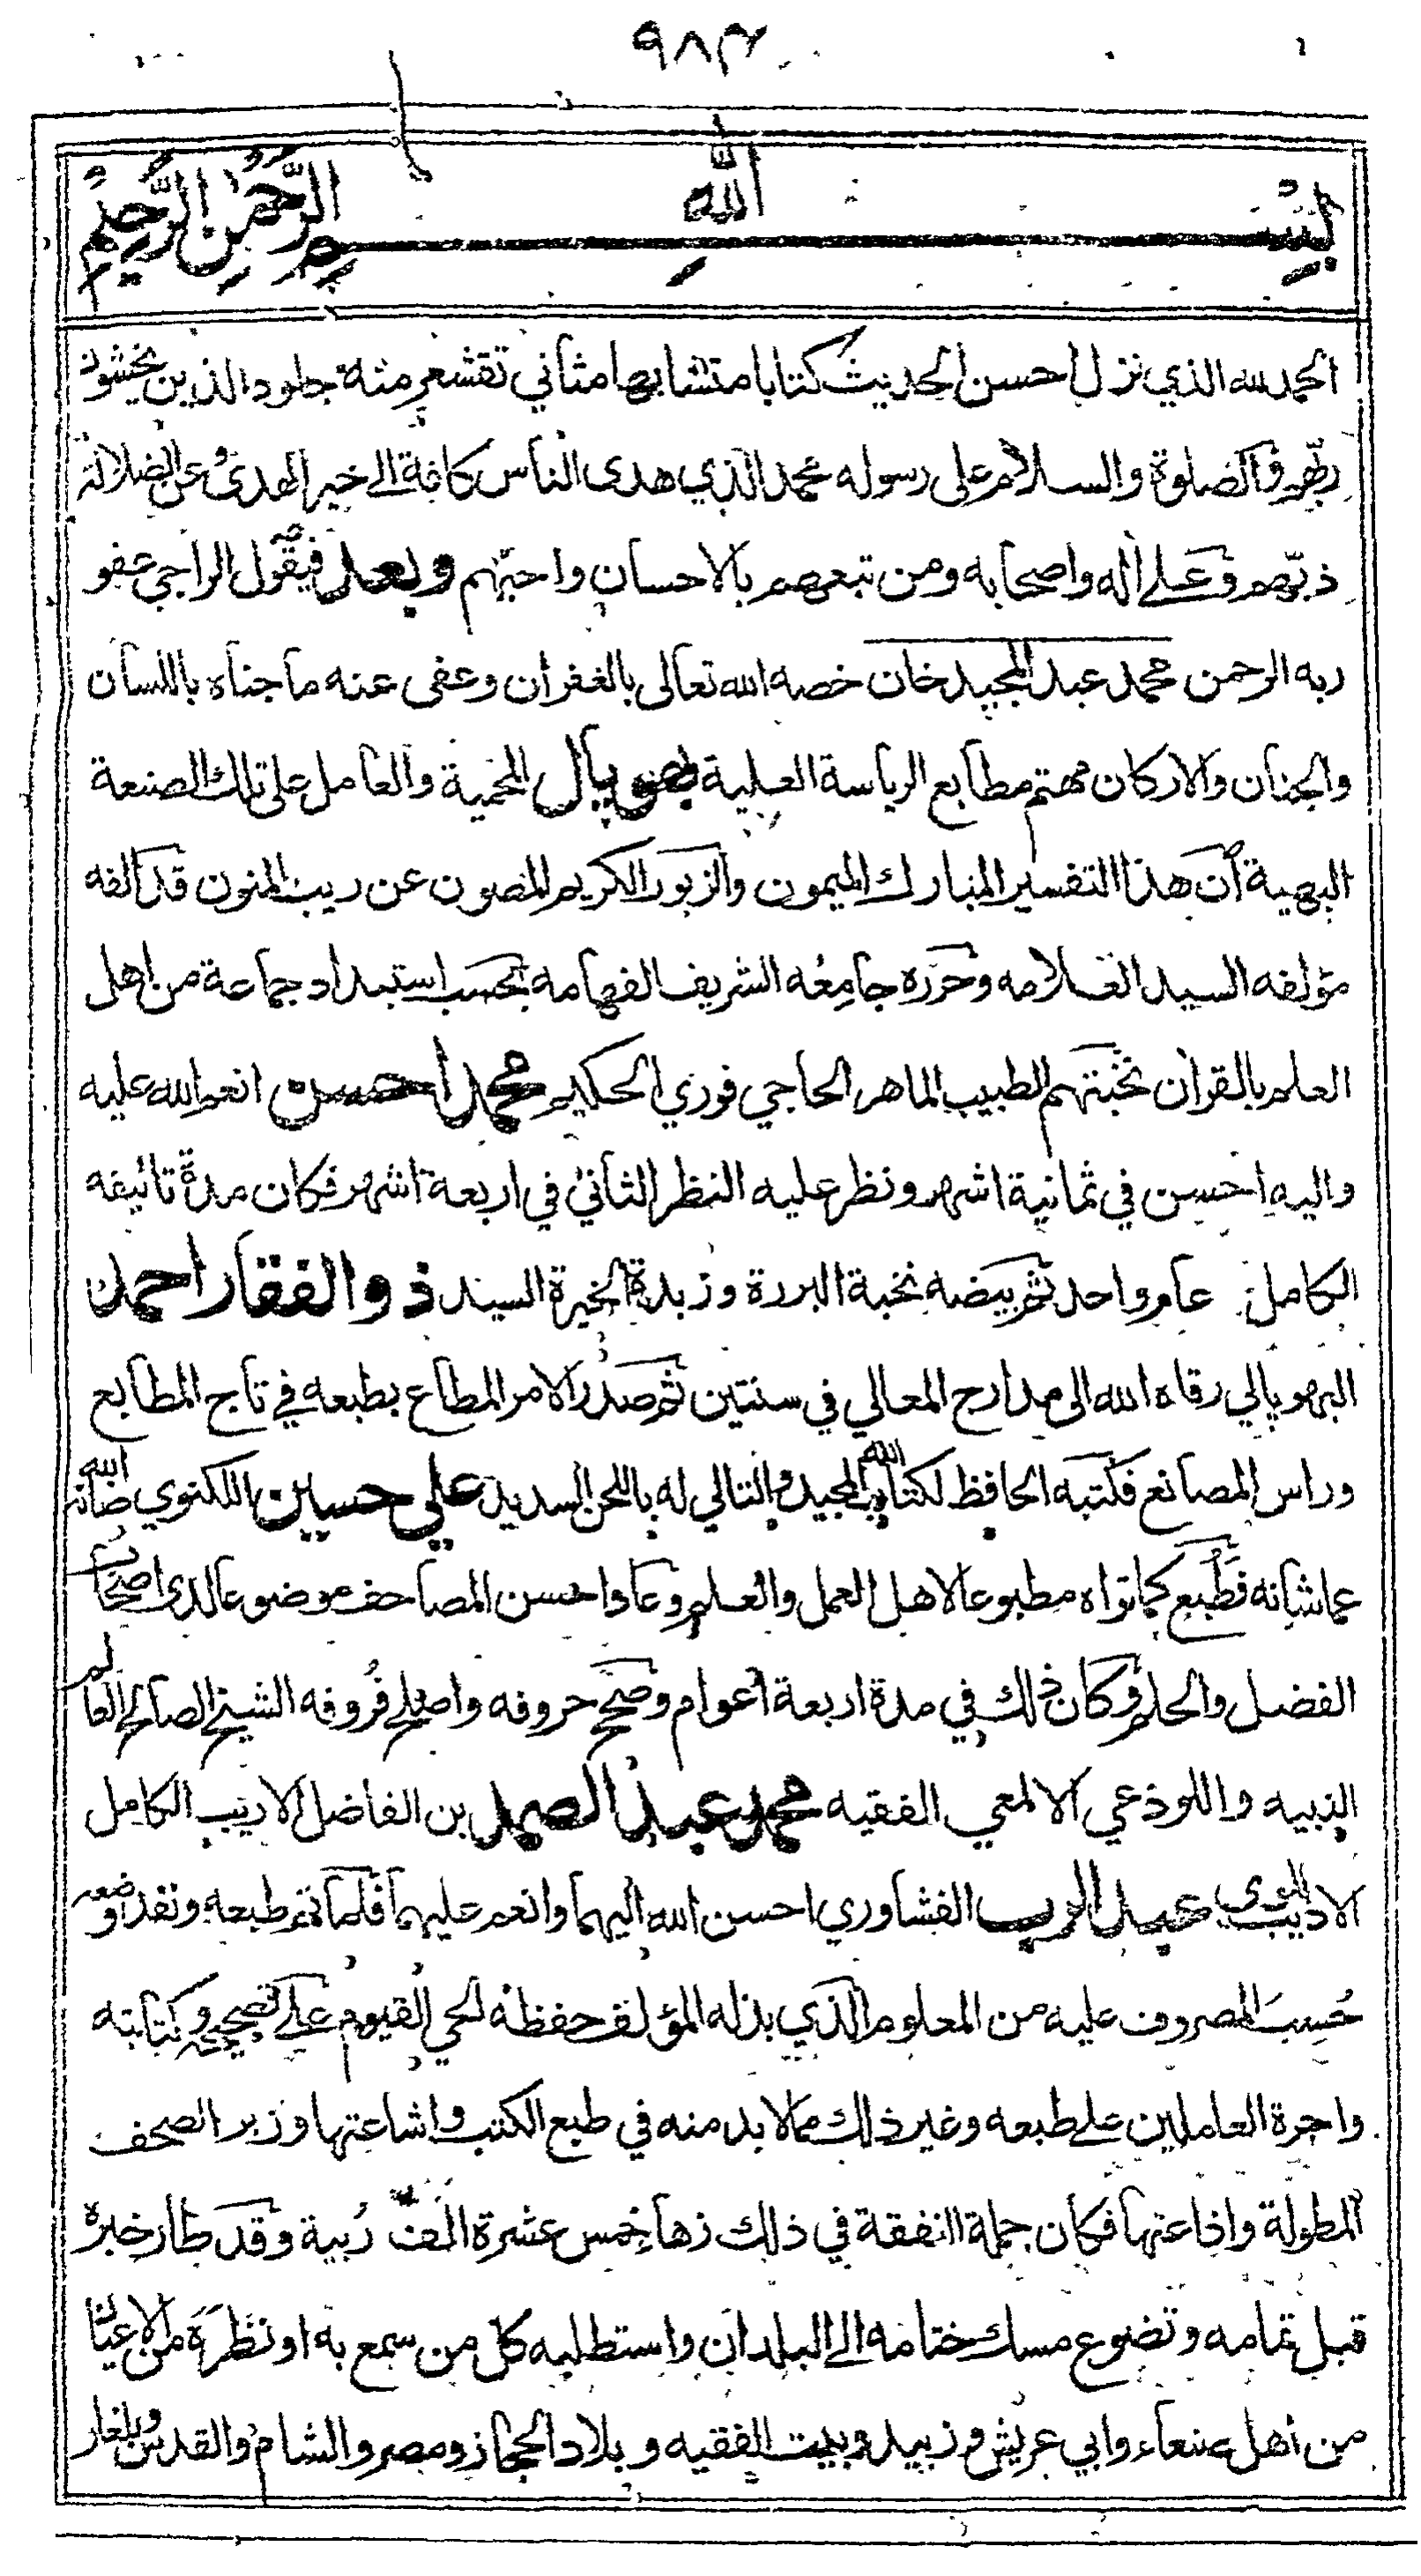 ٩٨٣
بسم الله الرحمن الرحيم
الحمد لله الذي نزل احسن الحديث كتابا متشابها مثاني تقشعر منه جلود الذين يخشون
ربهم والصلوة والسلام على رسوله محمد الذي هدى الناس كافة الى خير الهدى وعن الضلالة
ذبهم وعلى اله واصحابه ومن تبعهم بالاحسان واحبهم وبعد فيقول الراجي عفو
ربه الرحمن محمد عبد المجيد خان خصه الله تعالى بالغفران وعفى عنه ما جناه باللسان
والجنان والاركان مهتم مطابع الرياسة العلية بهوپال المحمية والعامل على تلك الصنعة
البهية ان هذا التفسير المبارك الميمون والزبور الكريم المصون عن ريب المنون قد الفه
مؤلفه السيد العلامه وحرره جامعه الشريف الفهامه بحسب استبداد جماعة من اهل
العلم بالقران نخبتهم الطبيب الماهر الحاجي فوري الحكيم محمد احسن انعم الله عليه
واليه احسن في ثمانية اشهر ونظر عليه النظر الثاني في اربعة اشهر فكان مدة تاليفه
الكامل عام واحد ثم بيضه نخبة البررة وزبدة الخيرة السيد ذو الفقار احمد
البهوپالي رقاه الله الى مدارج المعالي في سنتين ثم صدر الامر المطاع بطبعه في تاج المطابع
وراس المصانع فكتبه الحافظ لكتاب الله المجيد والتالي له باللحن السديد علي حسين اللكنوي صانه الله
عما شانه فطبع كما تراه مطبوعا لاهل العمل والعلم وعاد احسن المصاحف موضوعا لدى اصحاب
الفضل والحلم وكان ذلك في مدة اربعة اعوام وصحح حروفه واصلح فروفه الشيخ الصالح العالم
النبيه واللوذعي الالمعي الفقيه محمد عبد الصمد بن الفاضل الاريب الكامل
الاديب المولوي عبد الرب الفشاوري احسن الله اليهما وانعم عليهما فلما تم طبعه ونفد وضعه
حسب المصروف عليه من المعلوم الذي بذله المؤلف حفظه الحي القيوم على تصحيحه وكتابته
واجرة العاملين على طبعه وغير ذلك مما لا بد منه في طبع الكتب واشاعتها وزبر الصحف
المطولة واذاعتها فكان جملة النفقة في ذلك زها خمس عشرة الف ربية وقد طار خبره
قبل تمامه وتضوع مسك ختامه الى البلدان واستطلبه كل من سمع به او نظره من الاعيان
من اهل صنعاء وابي عريش وزبيد وبيت الفقيه وبلاد الحجاز ومصر والشام والقدس وبلغار